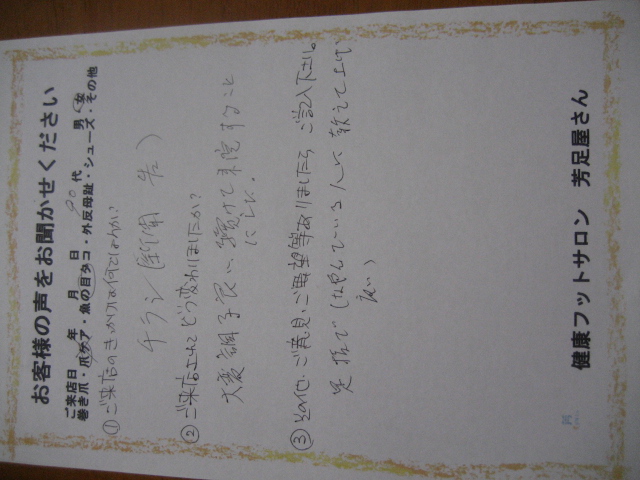 お客様の声をお聞かせください
ご来店日 年 月 日 90代 男・女
巻き爪・爪ケア・魚の目タコ・外反母趾・シューズ・その他
①ご来店のきっかけは何でしょうか?
チラシ(新聞 告)
②ご来店されてどう変わりましたか?
大変調子良い、続けて来院すること
にした。
③その他、ご意見、ご要望等ありましたら ご記入下さい。
足指で 悩んでいる人に 教えて上げ
良い
健康フットサロン 芳足屋さん